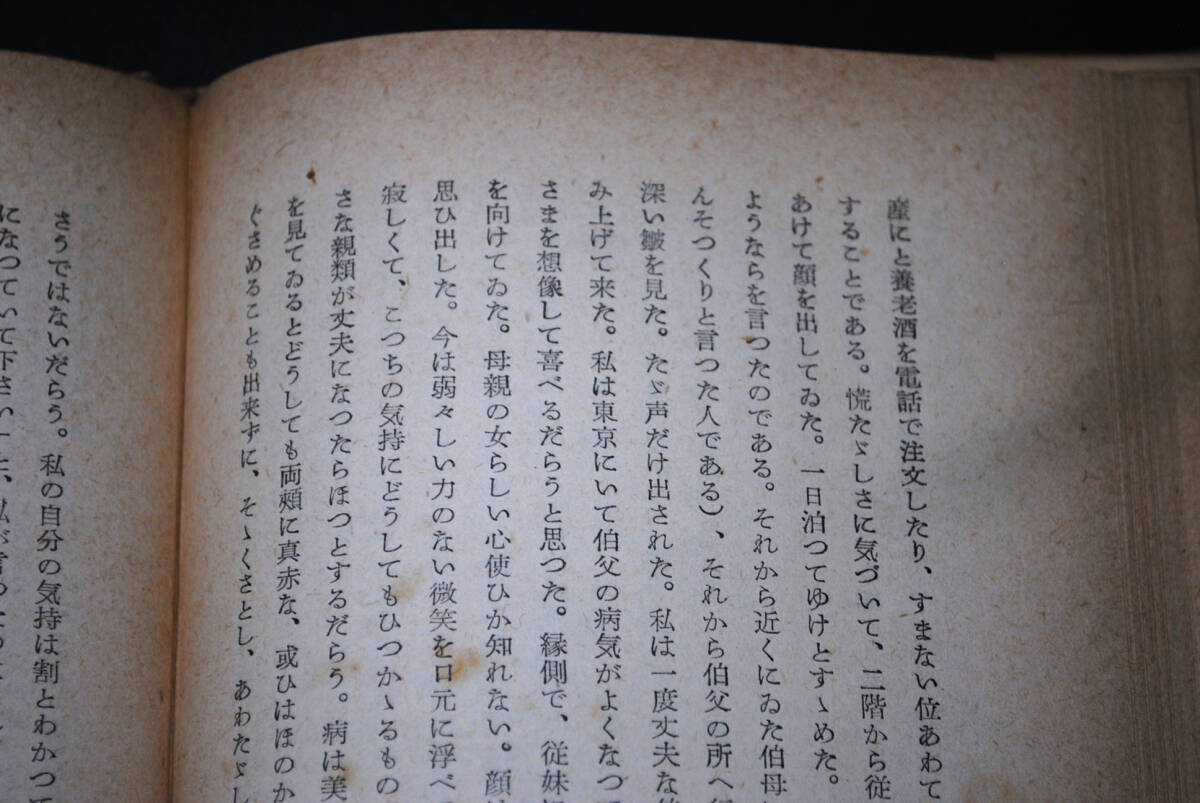 産にと養老酒を電話で注文したり、すまない位あわて
することである。慌たゞしさに気づいて、二階から従
あけて顔を出してゐた。一日泊つてゆけとすゝめた。
ようならを言つたのである。それから近くにゐた伯母
んそつくりと言つた人である)、それから伯父の所へ行
深い皺を見た。たゞ声だけ出された。私は一度丈夫な
み上げて来た。私は東京にいて伯父の病気がよくなつて
さまを想像して喜べるだらうと思つた。縁側で、従妹
を向けてゐた。母親の女らしい心使ひか知れない。顔
思ひ出した。今は弱々しい力のない微笑を口元に浮べ
寂しくて、こつちの気持にどうしてもひつかゝるもの
さな親類が丈夫になつたらほつとするだらう。病は美
を見てゐるとどうしても両頬に真赤な、或ひはほのか
ぐさめることも出来ずに、そゝくさとし、あわたゞし
さうではないだらう。私の自分の気持は割とわかつて
になつていて下さい